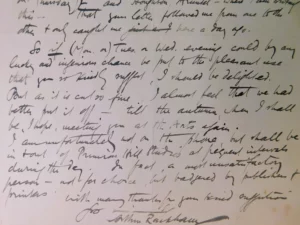 on Thursday I and
this. That your letter followed me from one to the
other & only caught me a day ago.
So if (or on) a wed. evening could by any
lucky and ingenious chance be put to the pleasant use
that you so kindly suggest, I should be delighted.
But as it is I almost feel that we had
better put it off - till the autumn, when I shall
be, I hope, meeting you at the Arts again.
I am unfortunately not on the phone, but shall be
in & out of Primrose Hill Studios at frequent intervals
during the day. In fact I'm a most unsatisfactory
person - not for choice, but badgered by publishers &
printers. With many thanks for your kind suggestion
Arthur Rackham